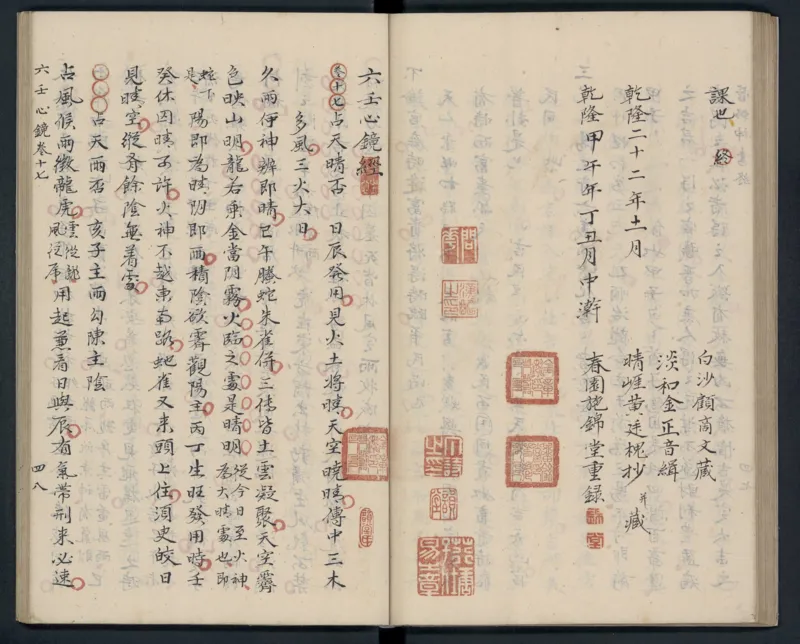 課也 終
乾隆二十二年十一月
乾隆甲午年丁丑月中澣
白沙顧商文藏
淡和金正音緝
晴崕黃廷槐抄并藏
春園施錦堂重録
六壬心鏡經
卷十七占天晴否 日辰發用見火土將晴天空曉晴傳中三木
多風三火大日
久雨伊神辨即晴巳午騰蛇朱雀併三傳皆土雲凝聚天空霽
色映山明龍若乘金當閉霧火臨之處是晴明從今日至火神
爲大晴處也即
是蛇下陽即為晴陰即雨積陰欲霽觀陽主丙丁生旺發用時壬
癸休囚晴可許火神不越東南路蛇雀又来頭上住須臾皎日
見晴空縱有餘陰無着處
占天雨否 亥子主雨勾陳主陰
占風候雨徵龍虎雲從龍風從虎用起兼看日與辰有氣帶刑来必速
六壬心鏡卷十七
四八